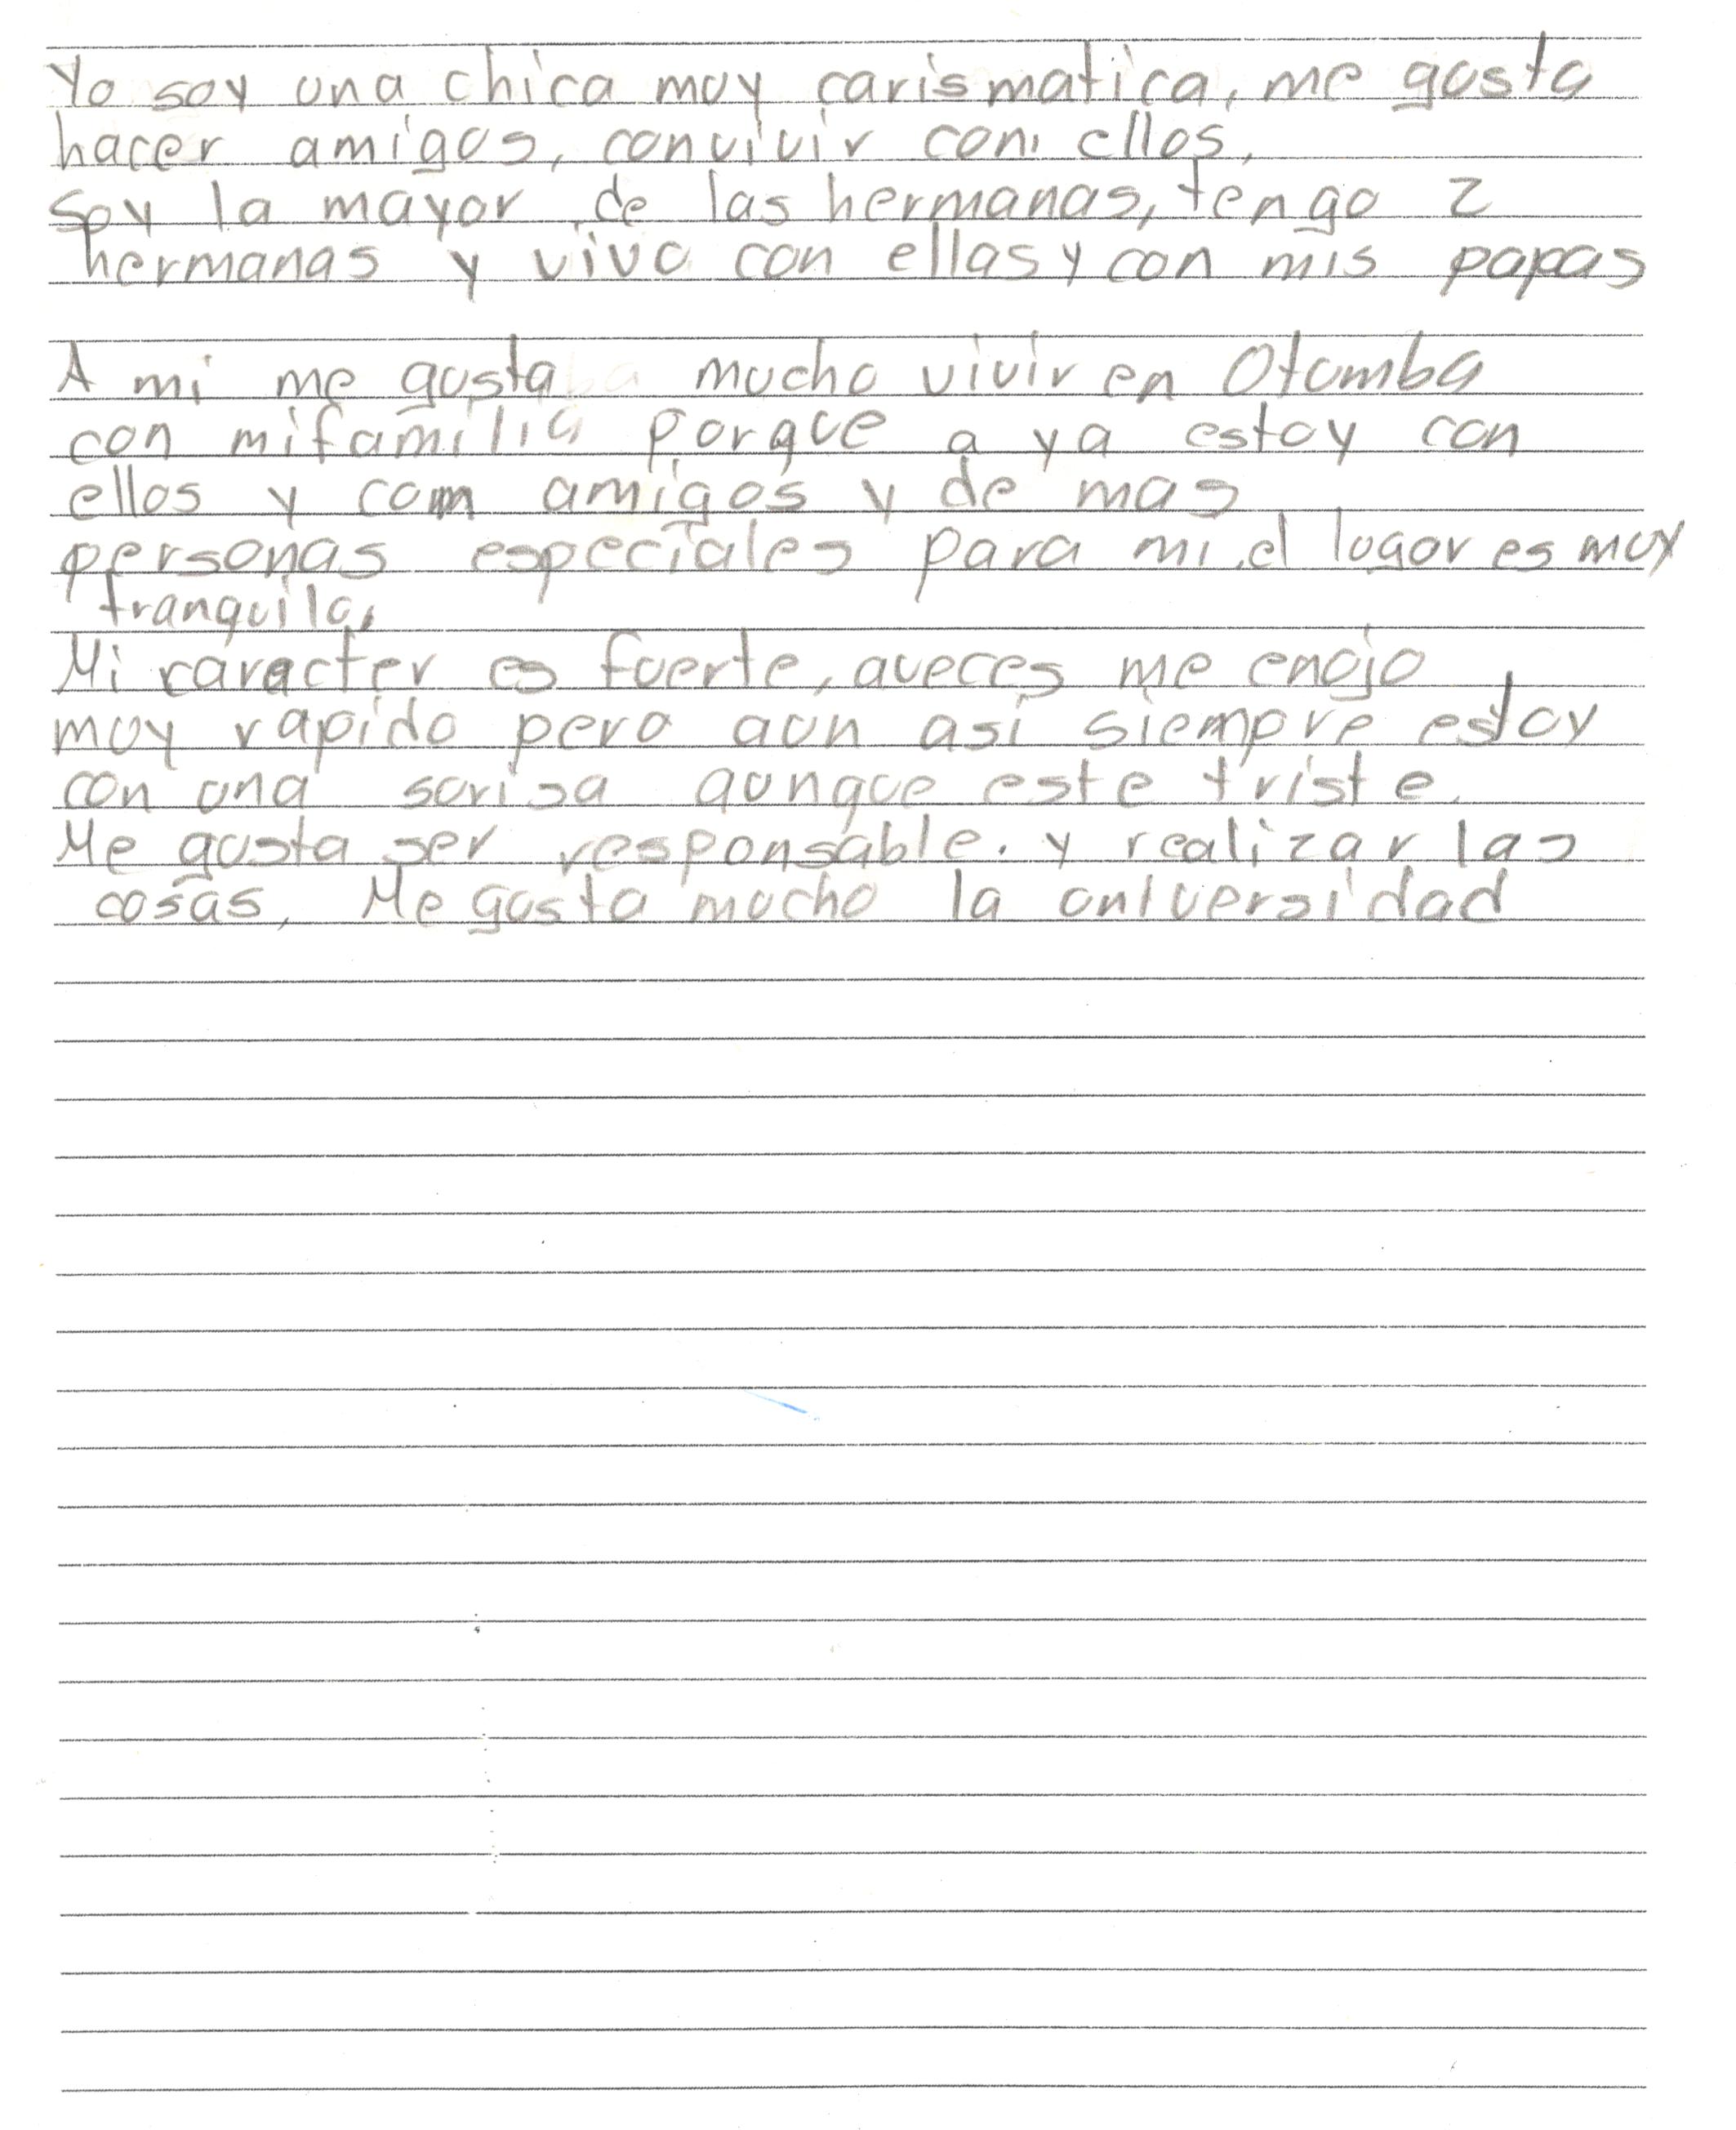 Yo soy una chica muy carismatica, me gusta
hacer amigos, convivir con ellos,
soy la mayor de las hermanas, tengo 2
hermanas y vivo con ellas y con mis papas
A mi me gusta mucho vivir en Otumba
con mi familia porque a ya estoy con
ellos y com amigos y de mas
personas especiales para mi, el lugar es muy
tranquilo,
Mi caracter es fuerte, aveces me enojo
muy rapido pero aun asi siempre estoy
con una sorisa aunque este triste.
Me gusta ser responsable. y realizar las
cosas, Me gusta mucho la universidad